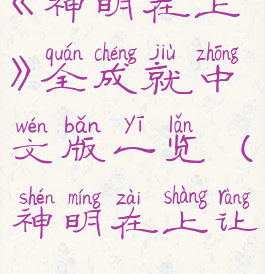 《神明在上
quán chéng jiù zhōng
》全成就中
wén bǎn yī lǎn
文版一览（
shén míng zài shàng ràng
神明在上让